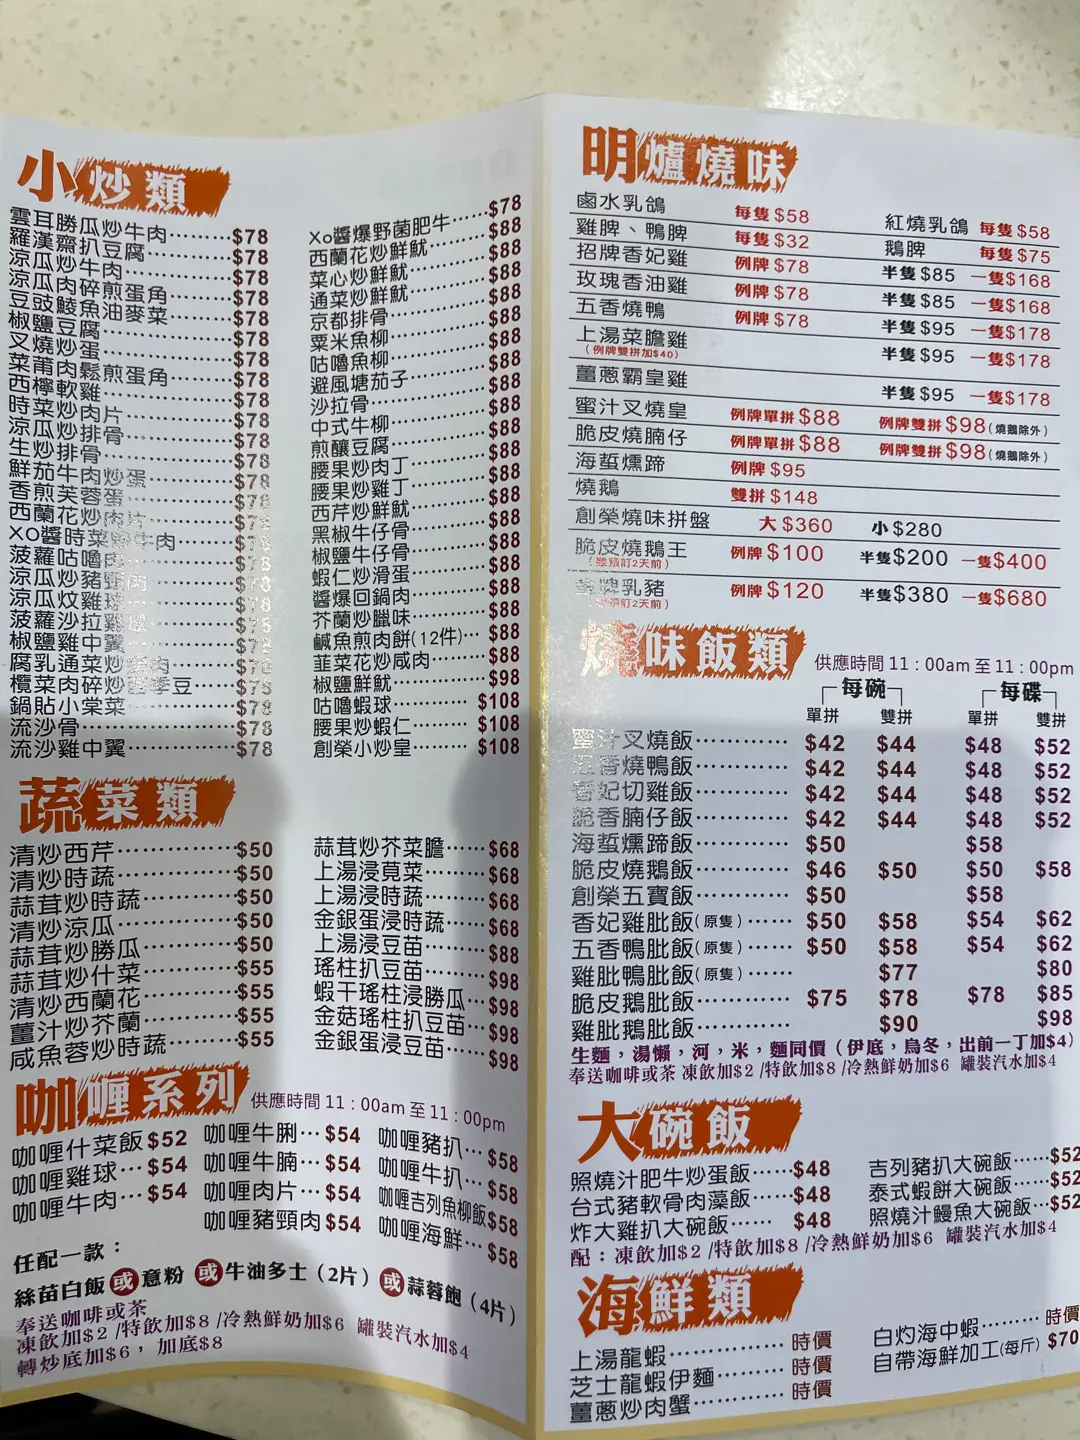 小炒類
雲耳勝瓜炒牛肉 $78
羅漢齋扒豆腐 $78
涼瓜炒牛肉 $78
涼瓜肉碎煎蛋角 $78
豆豉鯪魚油麥菜 $78
椒鹽豆腐 $78
叉燒炒蛋 $78
菜莆肉鬆煎蛋角 $78
西檸軟雞 $78
時菜炒肉片 $78
涼瓜炒排骨 $78
生炒排骨 $78
鮮茄牛肉炒蛋 $78
香煎芙蓉蛋 $78
西蘭花炒肉片
XO醬時菜 牛肉
菠蘿咕嚕肉 $78
涼瓜炒豬 肉 $78
涼瓜炆雞球 $78
菠蘿沙拉 $78
椒鹽雞中翼 $78
腐乳通菜炒 肉 $78
欖菜肉碎炒 季豆 $78
鍋貼小棠菜 $78
流沙骨 $78
流沙雞中翼 $78
Xo醬爆野菌肥牛 $78
西蘭花炒鮮魷 $88
菜心炒鮮魷 $88
通菜炒鮮魷 $88
京都排骨 $88
粟米魚柳 $88
咕嚕魚柳 $88
避風塘茄子 $88
沙拉骨 $88
中式牛柳 $88
煎釀豆腐 $88
腰果炒肉丁 $88
腰果炒雞丁 $88
西芹炒鮮魷 $88
黑椒牛仔骨 $88
椒鹽牛仔骨 $88
蝦仁炒滑蛋 $88
醬爆回鍋肉 $88
芥蘭炒臘味 $88
鹹魚煎肉餅(12件) $88
韮菜花炒咸肉 $88
椒鹽鮮魷 $98
咕嚕蝦球 $108
腰果炒蝦仁 $108
創榮小炒皇 $108
蔬菜類
清炒西芹 $50
清炒時蔬 $50
蒜茸炒時蔬 $50
清炒涼瓜 $50
蒜茸炒勝瓜 $50
蒜茸炒什菜 $55
清炒西蘭花 $55
薑汁炒芥蘭 $55
咸魚蓉炒時蔬 $55
蒜茸炒芥菜膽 $68
上湯浸莧菜 $68
上湯浸時蔬 $68
金銀蛋浸時蔬 $68
上湯浸豆苗 $88
瑤柱扒豆苗 $98
蝦干瑤柱浸勝瓜 $98
金菇瑤柱扒豆苗 $98
金銀蛋浸豆苗 $98
咖喱系列 供應時間 11：00am 至 11：00pm
咖喱什菜飯 $52 咖喱牛脷 $54 咖喱豬扒 $58
咖喱雞球 $54 咖喱牛腩 $54 咖喱牛扒 $58
咖喱牛肉 $54 咖喱肉片 $54 咖喱吉列魚柳飯 $58
咖喱豬頸肉 $54 咖喱海鮮 $58
任配一款：
絲苗白飯 或 意粉 或 牛油多士（2片）或 蒜蓉飽（4片）
奉送咖啡或茶
凍飲加$2 /特飲加$8 /冷熱鮮奶加$6 罐裝汽水加$4
轉炒底加$6， 加底$8
明爐燒味
鹵水乳鴿 每隻 $58 紅燒乳鴿 每隻 $58
雞脾、鴨脾 每隻 $32 鵝脾 每隻 $75
招牌香妃雞 例牌 $78 半隻 $85 一隻$168
玫瑰香油雞 例牌 $78 半隻 $85 一隻$168
五香燒鴨 例牌 $78 半隻 $95 一隻$178
上湯菜膽雞 半隻 $95 一隻$178
（例牌雙拼加$40）
薑蔥霸皇雞 半隻 $95 一隻$178
蜜汁叉燒皇 例牌單拼 $88 例牌雙拼 $98(燒鵝除外)
脆皮燒腩仔 例牌單拼 $88 例牌雙拼 $98(燒鵝除外)
海蜇燻蹄 例牌 $95
燒鵝 雙拼 $148
創榮燒味拼盤 大 $360 小 $280
脆皮燒鵝王 例牌 $100 半隻$200 一隻$400
（ 預訂2天前）
金牌乳豬 例牌 $120 半隻$380 一隻$680
預訂2天前）
燒味飯類 供應時間 11：00am 至 11：00pm
每碗 每碟
單拼 雙拼 單拼 雙拼
蜜汁叉燒飯 $42 $44 $48 $52
五香燒鴨飯 $42 $44 $48 $52
香妃切雞飯 $42 $44 $48 $52
脆香腩仔飯 $42 $44 $48 $52
海蜇燻蹄飯 $50 $58
脆皮燒鵝飯 $46 $50 $50 $58
創榮五寶飯 $50 $58
香妃雞肶飯(原隻) $50 $58 $54 $62
五香鴨肶飯(原隻) $50 $58 $54 $62
雞肶鴨肶飯(原隻) $77 $80
脆皮鵝肶飯 $75 $78 $78 $85
雞肶鵝肶飯 $90 $98
生麵，湯懶，河，米，麵同價（伊底，烏冬，出前一丁加$4）
奉送咖啡或茶 凍飲加$2 /特飲加$8 /冷熱鮮奶加$6 罐裝汽水加$4
大碗飯
照燒汁肥牛炒蛋飯 $48 吉列豬扒大碗飯 $52
台式豬軟骨肉藻飯 $48 泰式蝦餅大碗飯 $52
炸大雞扒大碗飯 $48 照燒汁鰻魚大碗飯 $52
配：凍飲加$2 /特飲加$8 /冷熱鮮奶加$6 罐裝汽水加$4
海鮮類
上湯龍蝦 時價 白灼海中蝦 時價
芝士龍蝦伊麵 時價 自帶海鮮加工(每斤) $70
薑蔥炒肉蟹 時價